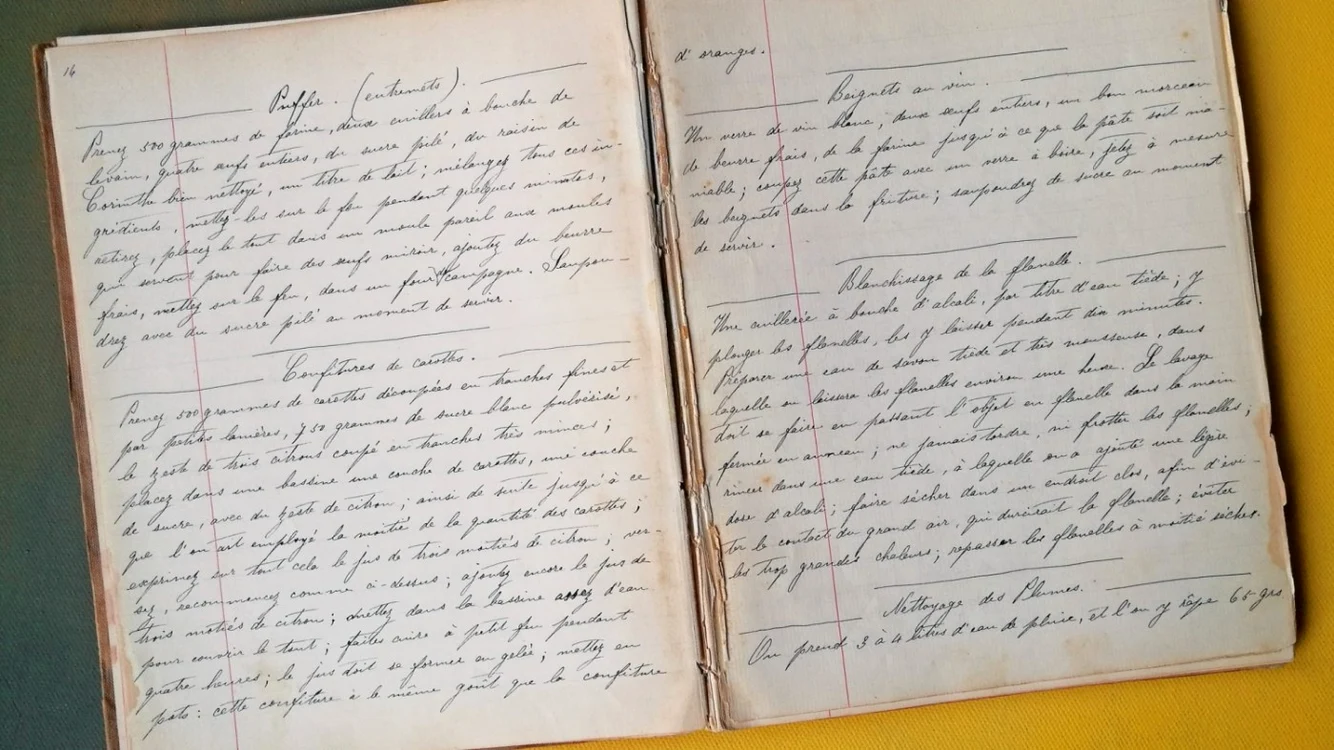 16
Puffer. (entremets).
Prenez 500 grammes de farine, deux cuillers à bouche de
levain, quatre œufs entiers, du sucre pilé, du raisin de
Corinthe bien nettoyé, un litre de lait; mélangez tous ces in-
grédients, mettez-les sur le feu pendant quelques minutes,
retirez, placez le tout dans un moule pareil aux moules
qui servent pour faire des œufs miroir, ajoutez du beurre
frais, mettez sur le feu, dans un four de campagne. Saupou-
drez avec du sucre pilé au moment de servir.
Confitures de carottes.
Prenez 500 grammes de carottes découpées en tranches fines et
par petites lanières, 750 grammes de sucre blanc pulvérisé,
le zeste de trois citrons coupé en tranches très minces;
placez dans une bassine une couche de carottes, une couche
de sucre, avec du zeste de citron; ainsi de suite jusqu'à ce
que l'on ait employé la moitié de la quantité des carottes;
exprimez sur tout cela le jus de trois moitiés de citron; ver-
sez, recommencez comme ci-dessus; ajoutez encore le jus de
trois moitiés de citron; mettez dans la bassine assez d'eau
pour couvrir le tout; faites cuire à petit feu pendant
quatre heures; le jus doit se former en gelée; mettez en
pots: cette confiture a le même goût que la confiture
d'oranges.
Beignets au vin.
Un verre de vin blanc; deux œufs entiers, un bon morceau
de beurre frais, de la farine jusqu'à ce que la pâte soit ma-
niable; coupez cette pâte avec un verre à boire, jetez à mesure
les beignets dans la friture; saupoudrez de sucre au moment
de servir.
Blanchissage de la flanelle.
Une cuillerée à bouche d'alcali, par litre d'eau tiède; y
plonger les flanelles, les y laisser pendant dix minutes.
Préparer une eau de savon tiède et très mousseuse, dans
laquelle on laissera les flanelles environ une heure. Le lavage
doit se faire en passant l'objet en flanelle dans la main
fermée en anneau; ne jamais tordre, ni frotter les flanelles;
rincer dans une eau tiède, à laquelle on a ajouté une légère
dose d'alcali; faire sécher dans un endroit clos, afin d'évi-
ter le contact du grand air, qui durcirait la flanelle; éviter
les trop grandes chaleurs; repasser les flanelles à moitié sèches.
Nettoyage des Plumes.
On prend 3 à 4 litres d'eau de pluie, et l'on y râpe 65 grs